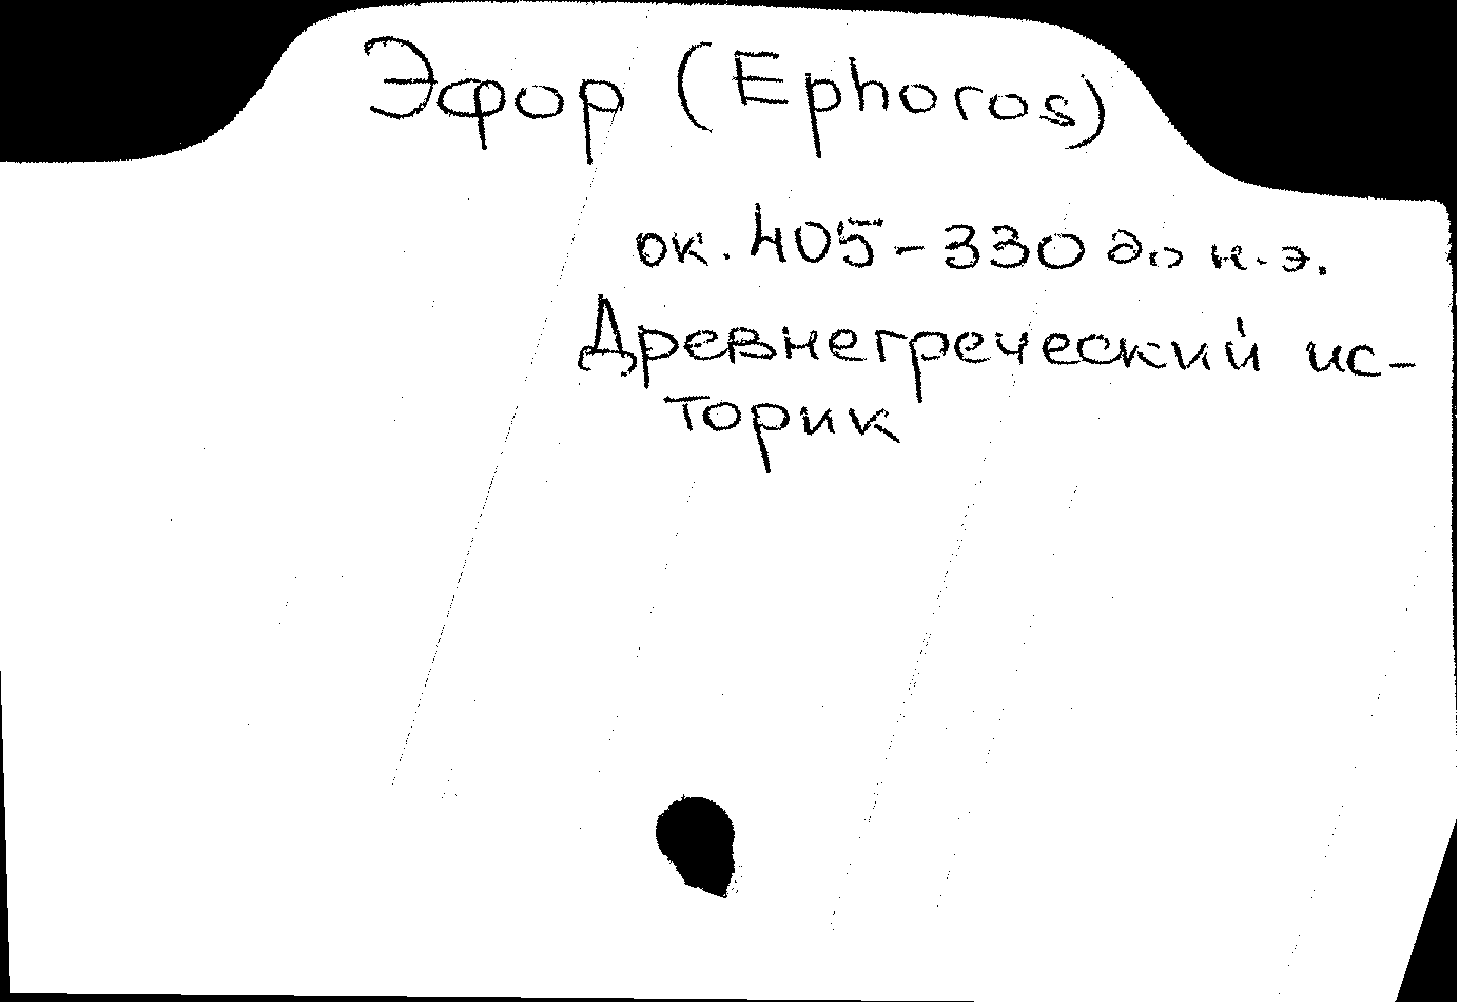 Эфор (Ephoros)
ок. 405-330 до н.э.
Древнегреческий ис-
торик